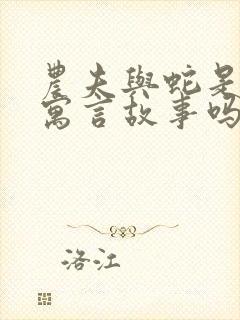 農夫與蛇是
寓言故事吗
洛江